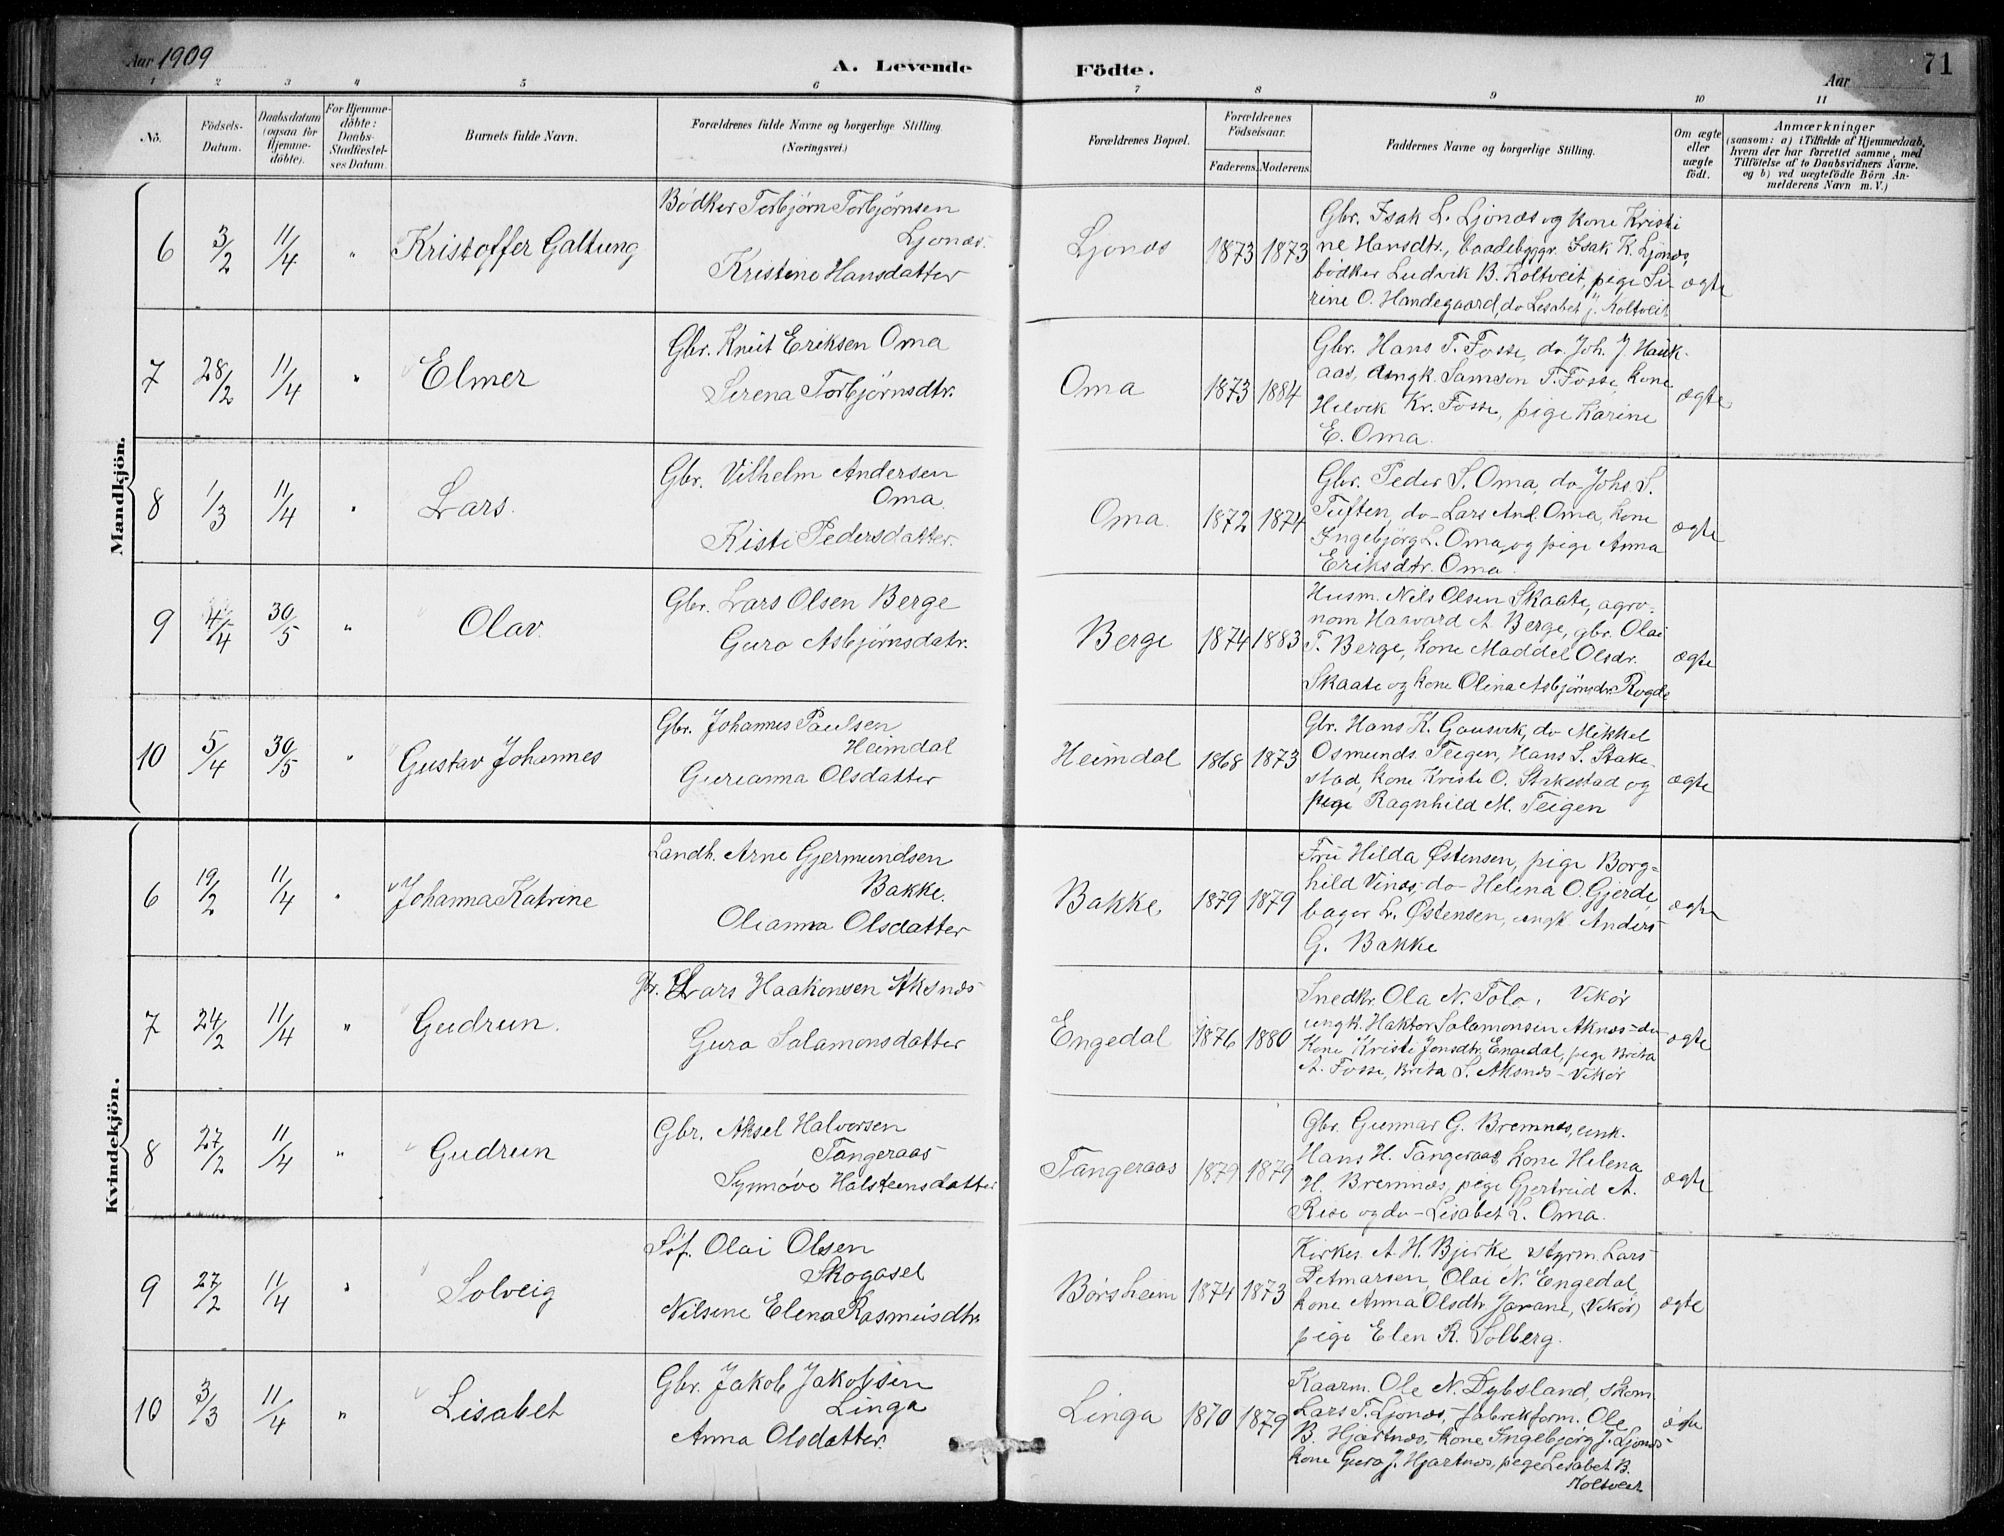 Aar 1909
A. Levende Födte.
Aar
71
1 2 3 4 5 6 7 8 9 10 11
No.
Födsels-
Datum.
Daabsdatum
(ogsaa for
Hjemme-
döbte).
For Hjemme-
döbte:
Daabs-
Stadfæstel-
ses Datum.
Barnets fulde Navn.
Forældrenes fulde Navne og borgerlige Stilling.
(Næringsvei.)
Forældrenes Bopæl.
Forældrenes
Födselsaar.
Faderens. Moderens.
Faddernes Navne og borgerlige Stilling.
Om ægte
eller
uægte
födt.
Anmærkninger
(saasom: a) i Tilfælde af Hjemmedaab,
hvem der har forrettet samme, med
Tilföielse af to Daabsvidners Navne.
og b) ved uægtefödte Börn An-
melderens Navn m. V.)
Mandkjön.
6 3/2 11/4 " Kristoffer Galtung
Bødker Torbjørn Torbjørnsen
Ljonæs.
Kristine Hansdatter
Ljonæs 1873 1873
Gbr. Isak L. Ljonæs og kone Kristi
ne Hansdtr., baadebyggr. Isak K. Ljonæs,
bødker Ludvik B. Koltveit, pige Si-
rine O. Handegaard, do Lisabet J. Koltveit
ægte
7 28/2 11/4 " Elmer
Gbr. Knut Eriksen Oma
Sirena Torbjørnsdtr.
Oma 1873 1884
Gbr. Hans T. Fosse, do. Joh. J. Hauk-
aas, ungk. Samson T. Fosse, kone
Helvik Kr. Fosse, pige Karine
E. Oma.
ægte
8 1/3 11/4 " Lars.
Gbr. Vilhelm Andersen
Oma.
Kisti Pedersdatter.
Oma. 1872 1874
Gbr. Peder S. Oma, do Johs S.
Tuften, do- Lars And. Oma, kone
Ingebjørg L. Oma og pige Anna
Eriksdtr. Oma.
ægte
9 4/4 30/5 " Olav.
Gbr. Lars Olsen Berge
Guro Asbjørnsdatr.
Berge 1874 1883
Husm. Nils Olsen Skaate, agro-
nom Havard A. Berge, gbr. Olai
T. Berge, kone Maddel Olsdr.
Skaate og kone Olina Asbjørnsdr. Rogde
ægte
10 5/4 30/5 " Gustav Johannes
Gbr. Johannes Paulsen
Heimdal
Gurianna Olsdatter
Heimdal 1868 1873
Gbr. Hans K. Gausvik, do Mikkel
Osmunds. Teigen, Hans S. Stake-
stad, kone Kristi O. Stakestad og
pige Ragnhild M. Teigen
ægte
Kvindekjön.
6 19/2 11/4 " Johanna Katrine
Landh. Arne Gjermundsen
Bakke.
Olianna Olsdatter
Bakke 1879 1879
Fru Hilda Østensen, pige Borg-
hild Vinæs, do- Helena O. Gjerde,
bager L. Østensen, ungk. Anders
G. Bakke
ægte
7 24/2 11/4 " Gudrun.
Gbr. Lars Haakonsen Aksnæs
Guro Salamonsdatter
Engedal 1876 1880
Snedkr. Ola N. Tolo, Vikør
ungk. Haktor Salamonsen Aknæs - do
Kone Kristi Jonsdtr. Engedal, pige Brita
A. Fosse, Brita S. Aksnæs - Vikør
ægte
8 27/2 11/4 " Gudrun
Gbr. Aksel Halvorsen
Tangeraas
Synnøve Halsteensdatter
Tangeraas 1879 1879
Gbr. Gunnar G. Bremnes, enk.
Hans H. Tangeraas, kone Helena
H. Bremnæs, pige Gjertrud A.
Rise og do - Lisabet L. Oma.
ægte
9 27/2 11/4 " Solveig
Söf. Olai Olsen
Skogasel
Nilsine Elena Rasmusdtr.
Börsheim 1874 1873
Kirkes. A. H. Bjerke, styrm. Lars
Detmarsen, Olai N. Engedal,
kone Anna Olsdtr. Javane, (Vikør)
pige Elen R. Solberg.
ægte
10 3/3 11/4 " Lisabet
Gbr. Jakob Jakobsen
Linga
Anna Olsdatter.
Linga 1870 1879
Kaarm. Ole N. Dybsland, skom.
Lars T. Ljonæs, fabrikform. Ole
B. Hjartnæs, kone Ingebjørg J. Ljonæs
kone Guro J. Hjartnæs, pige Lisabet B.
Koltveit
ægte